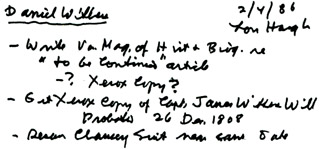 Daniel Wilken 2/4/86
Von Haugh
- Write Va Mag. of Hist + Biog. re
"to be continued" article
-? Xerox Copy?
- Get Xerox Copy of Capt. James Wilken Will
Probated 26 Dec. 1808
- Chancery Suit same date